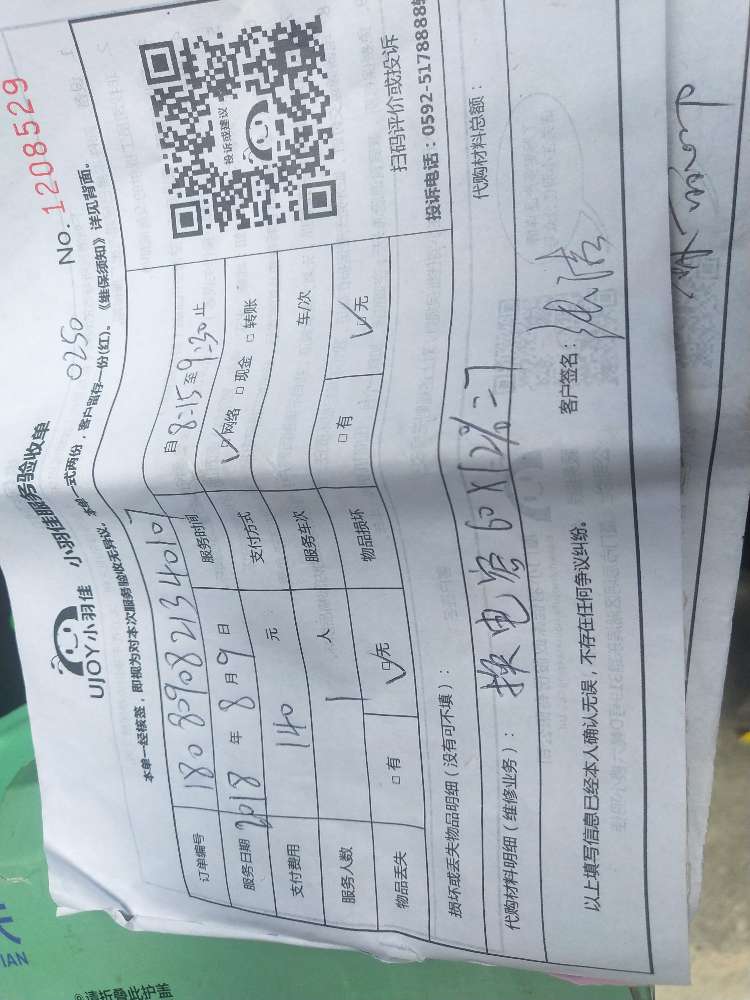 UJOY小羽佳 小羽佳服务验收单 0250 No. 1208529
本单一经核签，即视为对本次服务验收无异议。 一式两份，客户留存一份(红)。《维保须知》详见背面。
订单编号 180809082134010
服务日期 2018 年 8 月 9 日 服务时间 自 8:15 至 9:30 止
支付费用 140 元 支付方式 ☑网络 □现金 □转账
服务人数 1 人 服务车次 车/次
物品丢失 □有 ☑无 物品损坏 □有 ☑无
投诉或建议
扫码评价或投诉
投诉电话：0592-5178888
损坏或丢失物品明细（没有可不填）：
代购材料明细（维修业务）： 换电容 60X12%=7 代购材料总额：
以上填写信息已经本人确认无误，不存在任何争议纠纷。 客户签名：
IAN
请折叠此护盖